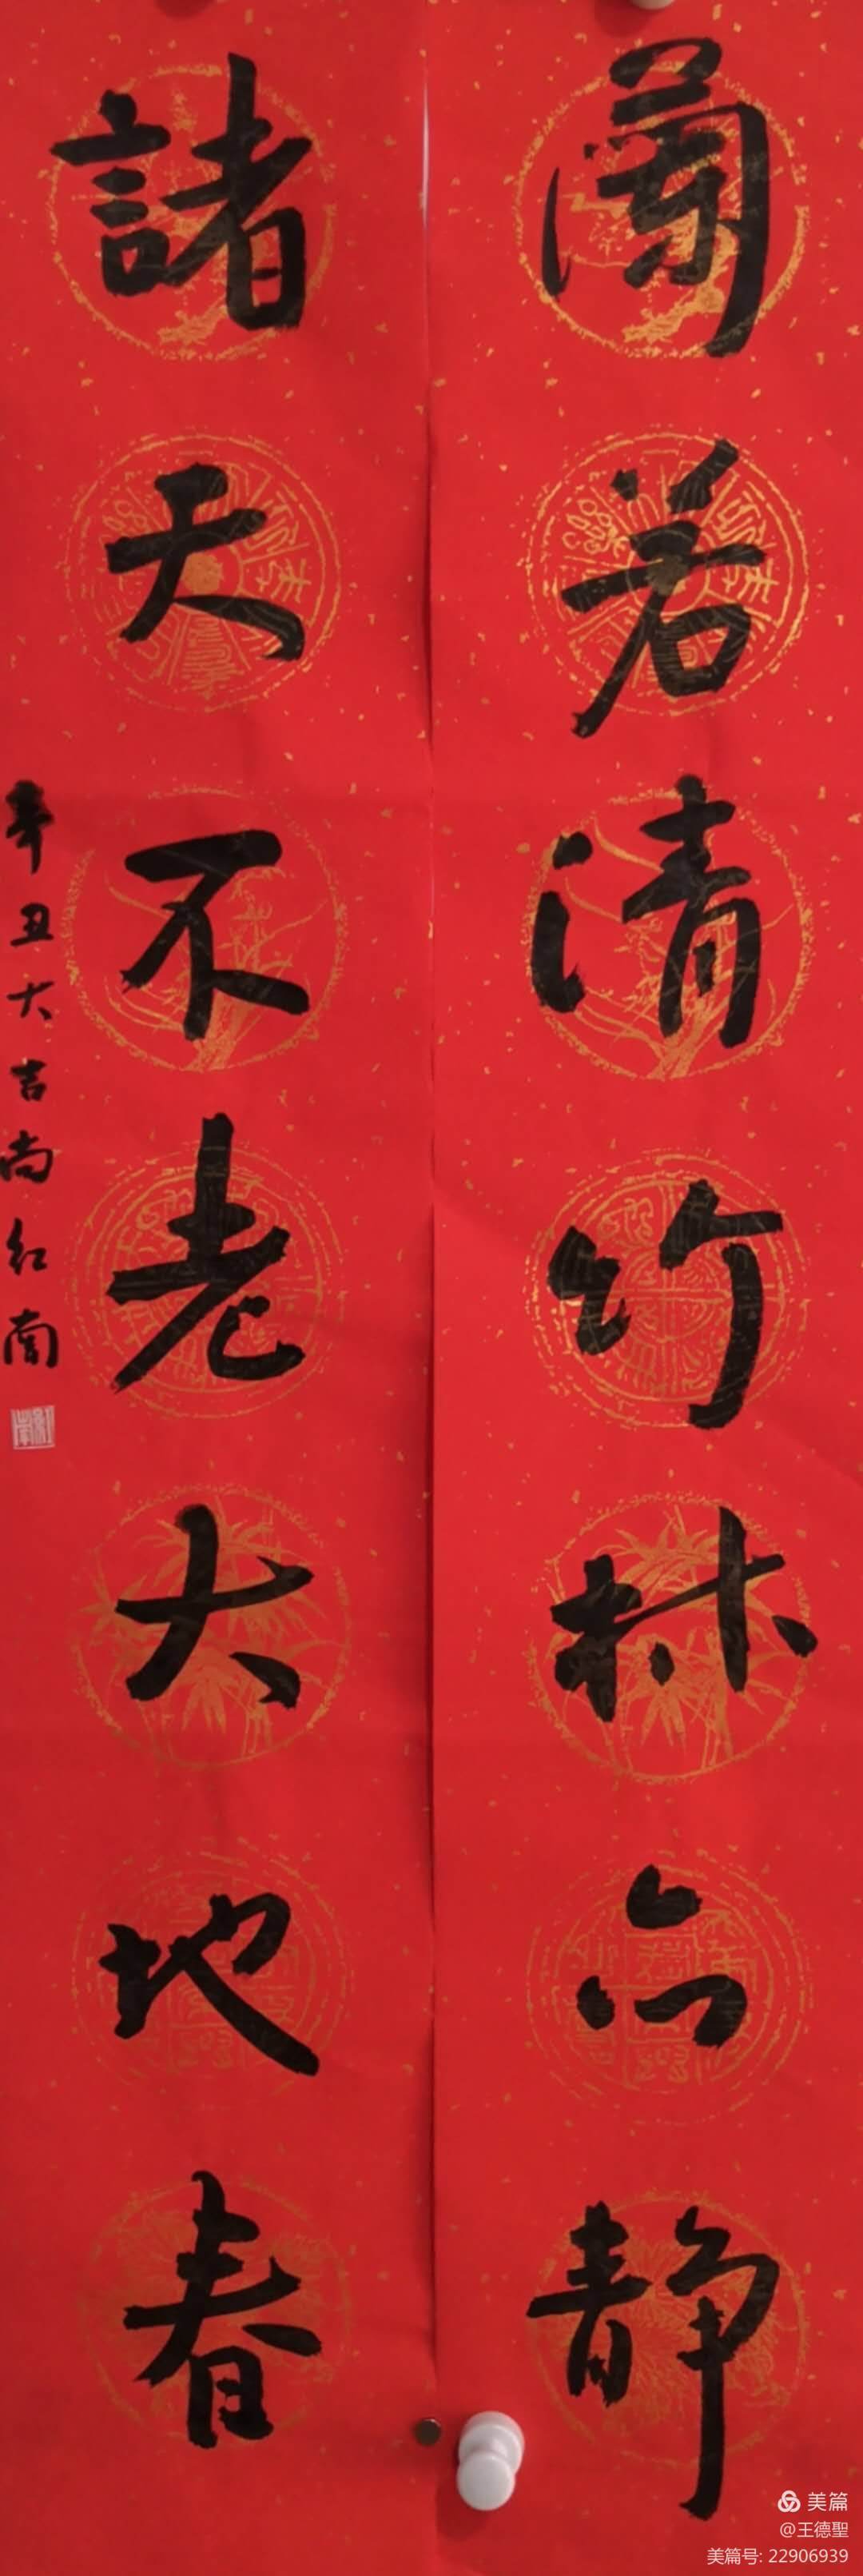 蘭若清竹林心靜
諸天不老大地春
辛丑大吉尚红南
美篇
@王德聖
美篇号: 22906939